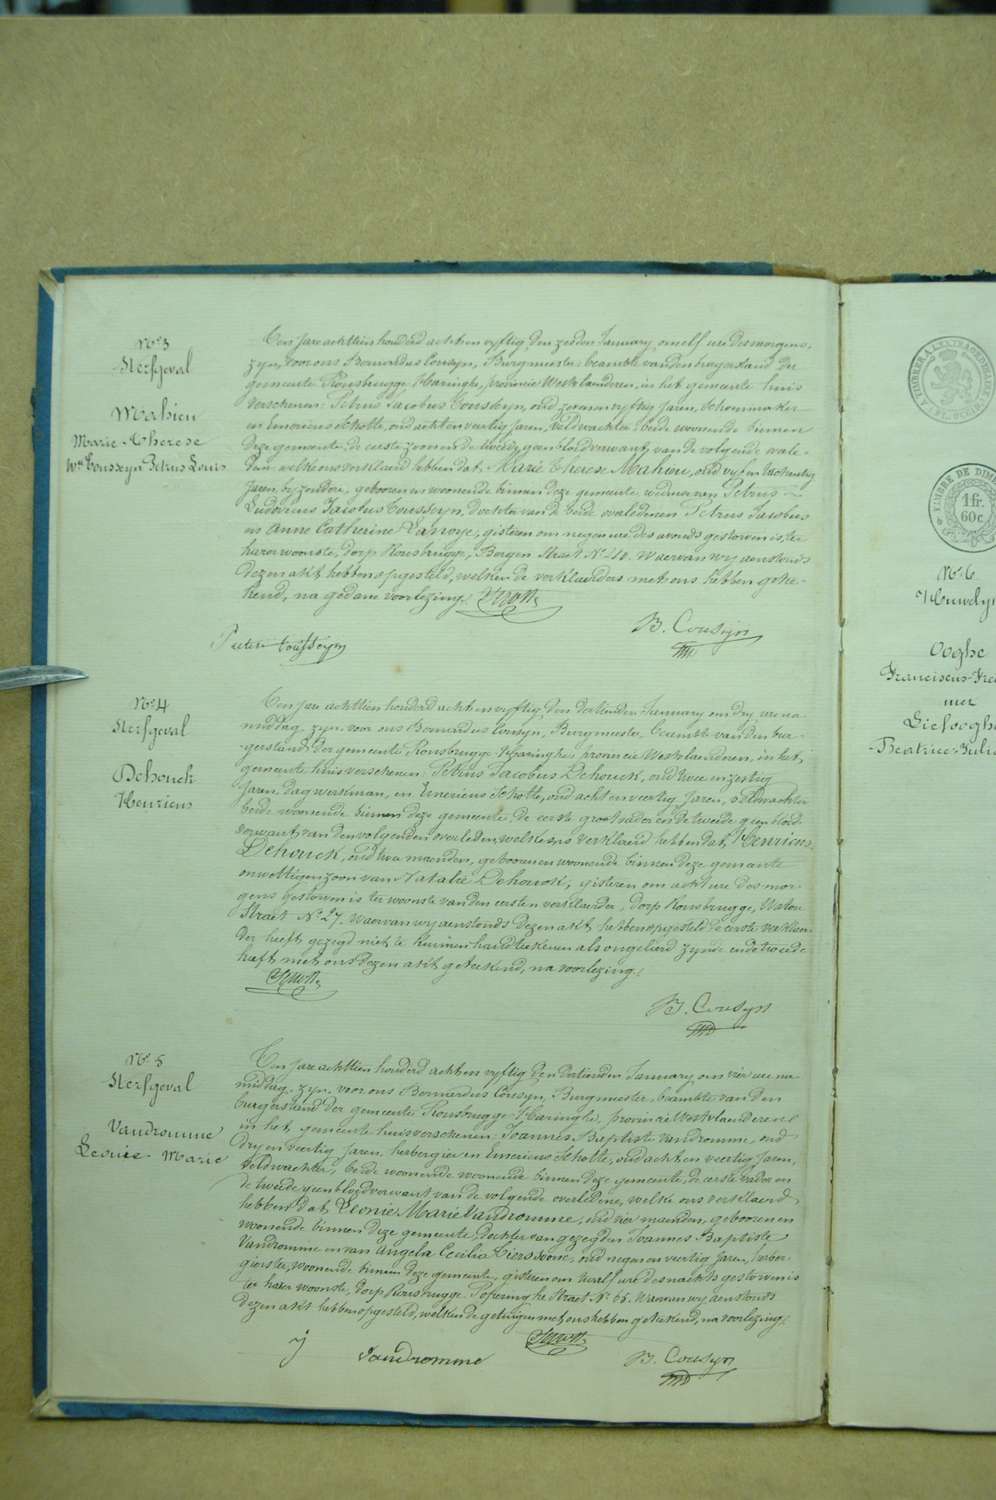 N° 3
Sterfgeval
Mahieu
Marie Therese
We Cousseyn Petrus Louis
Ten jare achttien honderd acht en vyftig den January, om elf ure des morgens,
zyn, voor ons Bernardus Cousyn, Burgmeester, beambte van den burgerstand der
gemeente Rousbrugge-Haringhe, provincie Westvlanderen, in het gemeente huis
verschenen Petrus Jacobus oud en vyftig jaren, schoenmaker
en Emericus Scholte, oud acht en veertig jaren, veldwachter beide woonende binnen
deze gemeente, de eerste zoon en de tweede geen bloedverwant van de volgende overle-
dene, welke ons verklaard hebben dat Marie Therese Mahieu, oud vyf en tachentig
jaren, byzondere, geboren en woonende binnen deze gemeente weduwe van Petrus
Ludovicus dochter van de beide overledenen Petrus Jacobus
en Anne Catherine gisteren om negen ure des avonds gestorven is, ter
harer woonste, dorp Rousbrugge, Bergen Straet N° 10. Waervan wy aenstonds
dezen akt hebben opgesteld, welken de verklaerders met ons hebben gete-
kend, na gedane voorlezing.
B. Cousyn
Pieter
N° 4
Sterfgeval
Dehouck
Henricus
Ten jare achttien honderd acht en vyftig, den dertienden January om dry ure na-
middag, zyn voor ons Bernardus Cousyn, Burgmeester, beambte van den bur-
gerstand der gemeente Rousbrugge-Haringhe, provincie Westvlanderen, in het
gemeente huis verschenen Petrus Jacobus Dehouck, oud twee en zestig
jaren dagwerkman, en Emericus Scholte, oud acht en veertig jaren, veldwachter
beide woonende binnen deze gemeente, de eerste grootvader en de tweede geen bloed-
verwant van den volgenden overleden, welke ons verklaerd hebben dat, Henricus
Dehouck, oud twee maenden, geboren en woonende binnen deze gemeente
onwettigen zoon van Natalie Dehouck, gisteren om acht ure des mor-
gens gestorven is ter woonste van den eersten verklaerder, dorp Rousbrugge, Watou
Straet N° 27. Waervan wy aenstonds dezen akt hebben opgesteld de eerste verklaer-
der heeft gezegd niet te kunnen handteekenen als ongeleerd zynde en de tweede
heeft met ons dezen akt geteekend, na voorlezing.
B. Cousyn
N° 5
Sterfgeval
Vandromme
Leonie Marie
Ten jare achttien honderd acht en vyftig den dertienden January, om vier ure na-
middag, zyn, voor ons Bernardus Cousyn, Burgmeester, beambte van den
burgerstand der gemeente Rousbrugge-Haringhe, provincie Westvlanderen
in het gemeente huis verschenen Joannes Baptiste Vandromme, oud
dry en veertig jaren, herbergier en Emericus Scholte, oud acht en veertig jaren,
veldwachter, beide woonende woonende binnen deze gemeente, de eerste vader en
de tweede geen bloedverwant van de volgende overledene, welke ons verklaerd
hebben dat, Leonie Marie Vandromme, oud vier maenden, geboren en
woonende binnen deze gemeente, dochter van gezegden Joannes Baptiste
Vandromme en van Angela Cecilia oud negen en veertig jaren, herber-
gierster, woonende binnen deze gemeente, gisteren om twalf ure des nachts gestorven is
ter harer woonste, dorp Rousbrugge Poperinghe Straet N° 65. Waervan wy aenstonds
dezen akt hebben opgesteld, welken de getuigen met ons hebben geteekend, na voorlezing.
Vandromme
B. Cousyn
TIMBRE DE DIM
1 fr.
60 c.
N° 6
Huwelyk
Ooghe
Franciscus Fre
met
Liefooghe
Beatrice Juli